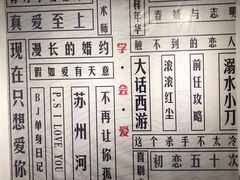 真爱至上
术师
样年华
春娇与志明
漫长的婚约
触不到的恋人
现在只想爱你
假如爱有天意
学会爱
BJ单身日记
P.S I LOVE YOU
苏州河
不再让你孤
大话西游
滚滚红尘
前任攻略
溺水小刀
这个杀手不太冷
喜剧
初恋五十次